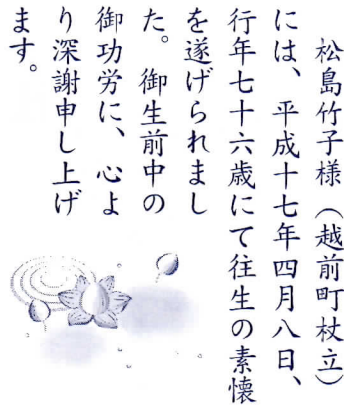 松島竹子様（越前町杖立）
には、平成十七年四月八日、
行年七十六歳にて往生の素懐
を遂げられまし
た。御生前中の
御功労に、心よ
り深謝申し上げ
ます。